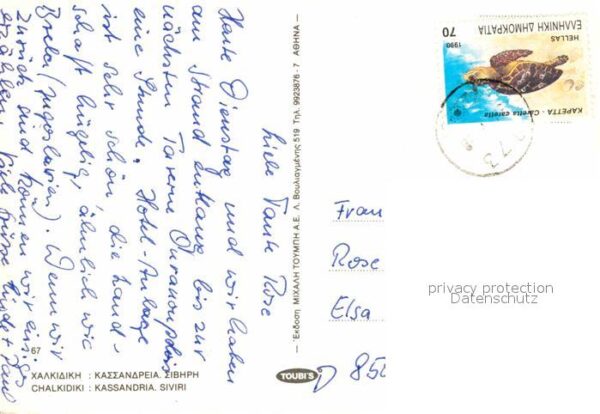 Liebe Tante Rose
Heute Dienstag und wir haben
am Strand entlang bis zur
nächsten Taverne Ouranoupolis
eine Stunde. Hotel-Anlage
ist sehr schön, die Land-
schaft hügelig, ähnlich wie
Brela (Jugoslavien). Wenn wir
zurück sind können wir einiges
erzählen. Viele Grüsse
67
ΧΑΛΚΙΔΙΚΗ : ΚΑΣΣΑΝΔΡΕΙΑ. ΣΙΒΗΡΗ
CHALKIDIKI : KASSANDRIA. SIVIRI
— Έκδοση ΜΙΧΑΛΗ ΤΟΥΜΠΗ Α.Ε. Λ. Βουλιαγμένης 519 Τηλ. 9923876 - 7 ΑΘΗΝΑ —
TOUBI'S
70
ΕΛΛΗΝΙΚΗ ΔΗΜΟΚΡΑΤΙΑ
HELLAS
1990
ΚΑΡΕΤΤΑ - Caretta caretta
Frau
Rose
Elsa
D 850
privacy protection
Datenschutz